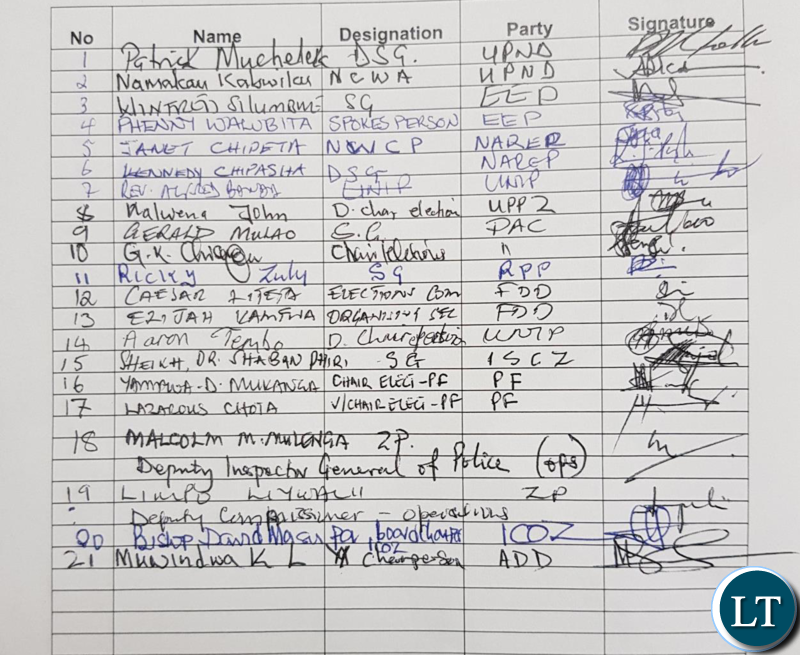 No Name Designation Party Signature
1 Patrick Mucheleka DSG. UPND
2 Namakau Kabwiku NCWA UPND
3 WINFRED SG EEP
4 PHENNY WALUBITA SPOKESPERSON EEP
5 JANET CHIPETA NWCP NAREP
6 KENNEDY CHIPASHA DSG NAREP
7 REV. ALFRED BANDA UNIP UNIP
8 Kalwena John D. chair election UPPZ
9 GERALD MULAO S.G PAC
10 G.K. Chair elections "
11 RICKY Zulu SG RPP
12 CAESAR LITETA ELECTIONS COM FDD
13 ELIJAH ORGANISING SEC FDD
14 Aaron Tembo D. Chairperson UNIP
15 SHEIKH, DR. SHABAN PHIRI, SG ISCZ
16 YAMAWA-D. MUKANGA CHAIR ELEC-PF PF
17 LAZAROUS CHOTA V/CHAIR ELEC-PF PF
18 MALCOLM M. MULENGA ZP.
Deputy Inspector General of Police (ops)
19 LIMPO ZP
Deputy Commissioner - operations
20 Bishop David Masupa, board ICOZ
ICOZ
21 Muwindwa K L Chairperson ADD
LT